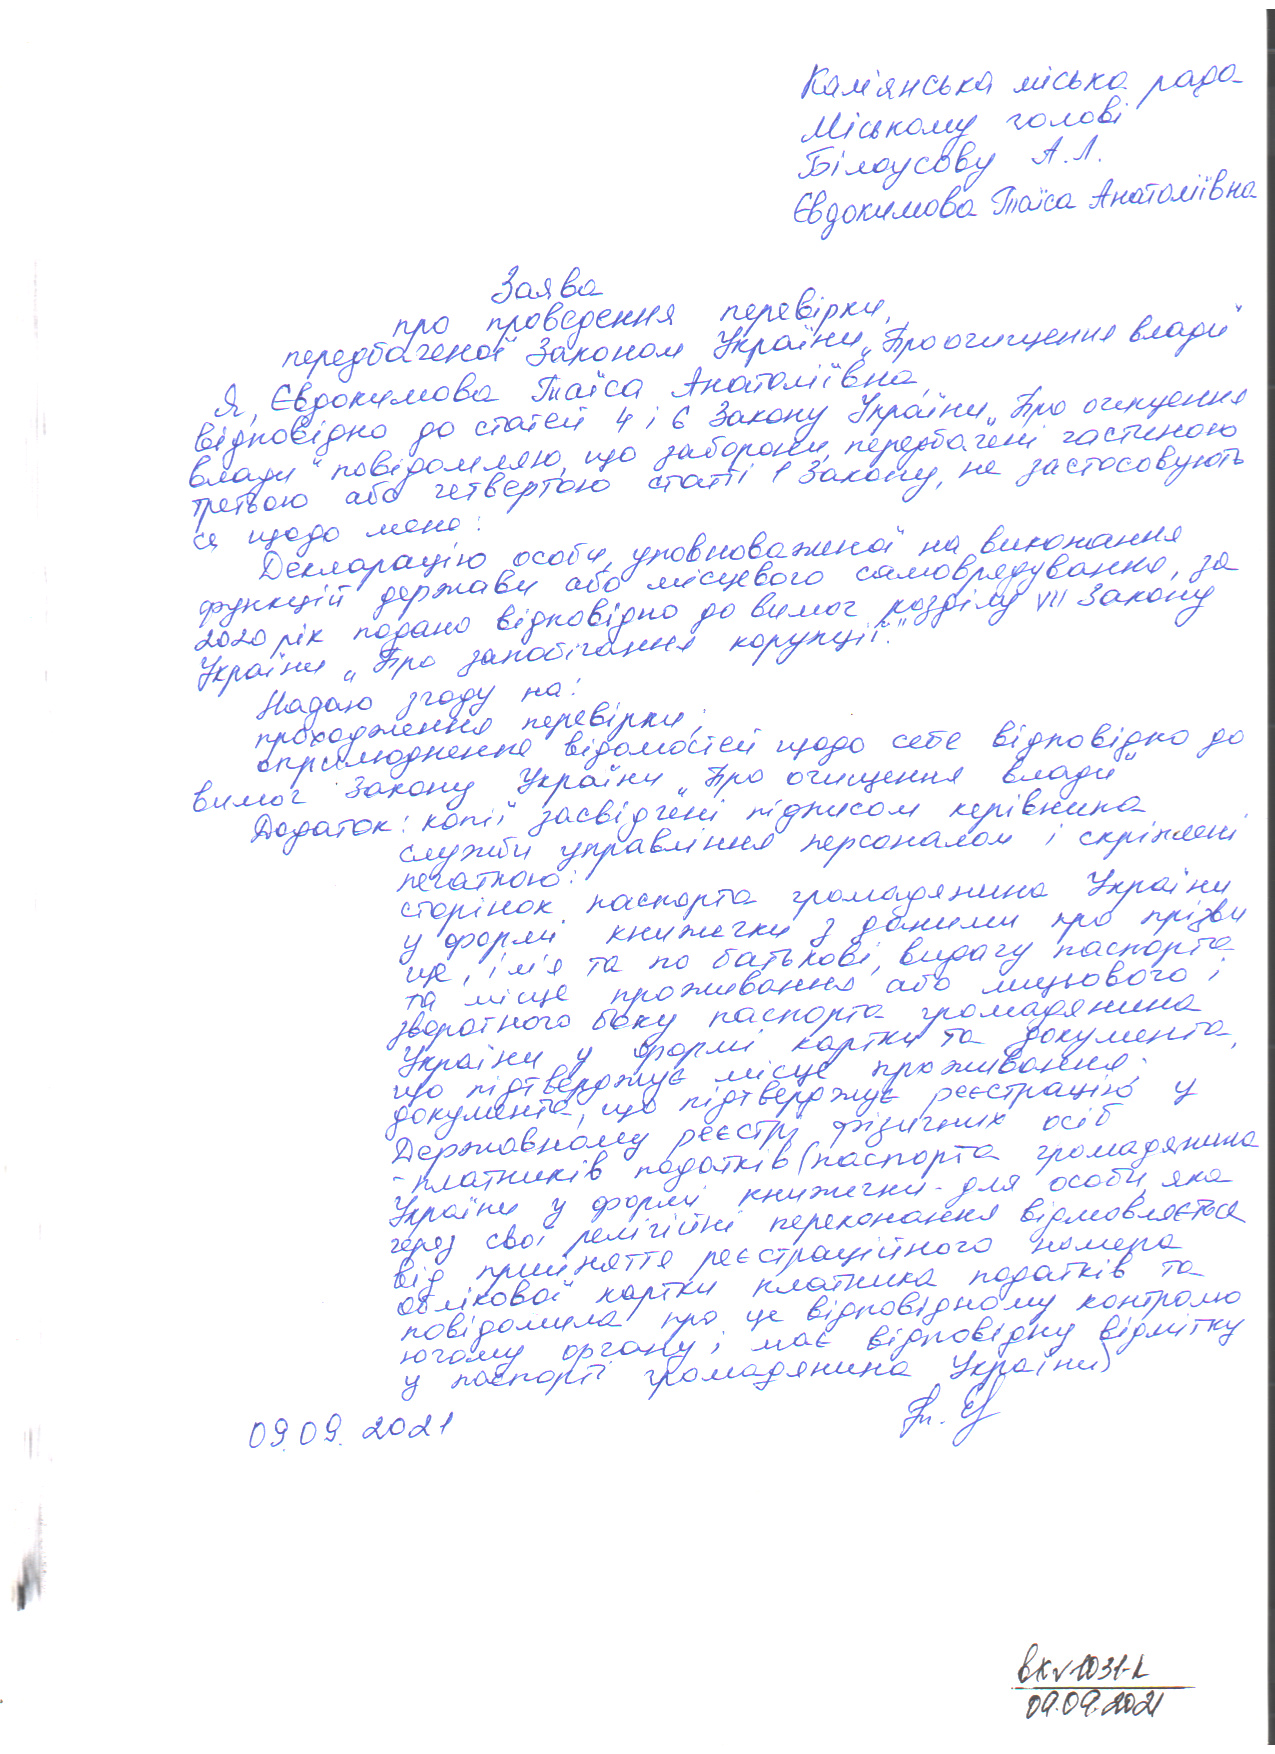 Кам'янська міська рада
Міському голові
Білоусову А.Л.
Євдокимова Таїса Анатоліївна
Заява
про проведення перевірки,
передбаченої Законом України „Про очищення влади"
Я, Євдокимова Таїса Анатоліївна,
відповідно до статей 4 і 6 Закону України „Про очищення
влади" повідомляю, що заборони, передбачені частиною
третьою або четвертою статті 1 Закону, не застосовують
ся щодо мене:
Декларацію особи, уповноваженої на виконання
функцій держави або місцевого самоврядування, за
2020 рік подано відповідно до вимог розділу VII Закону
України „Про запобігання корупції".
Надаю згоду на:
проходження перевірки;
оприлюднення відомостей щодо себе відповідно до
вимог Закону України „Про очищення влади"
Додаток: копії засвідчені підписом керівника
служби управління персоналом і скріплені
печаткою:
сторінок паспорта громадянина України
у формі книжечки з даними про прізви
ще, ім'я та по батькові, видачу паспорта
та місце проживання або лицьового і
зворотного боку паспорта громадянина
України у формі картки та документа,
що підтверджує місце проживання.
документа, що підтверджує реєстрацію у
Державному реєстрі фізичних осіб
- платників податків (паспорта громадянина
України у формі книжечки - для особи, яка
через свої релігійні переконання відмовляється
від прийняття реєстраційного номера
облікової картки платника податків та
повідомила про це відповідному контролю
ючому органу і має відповідну відмітку
у паспорті громадянина України)
09.09.2021
вк № 1031-
09.09.2021